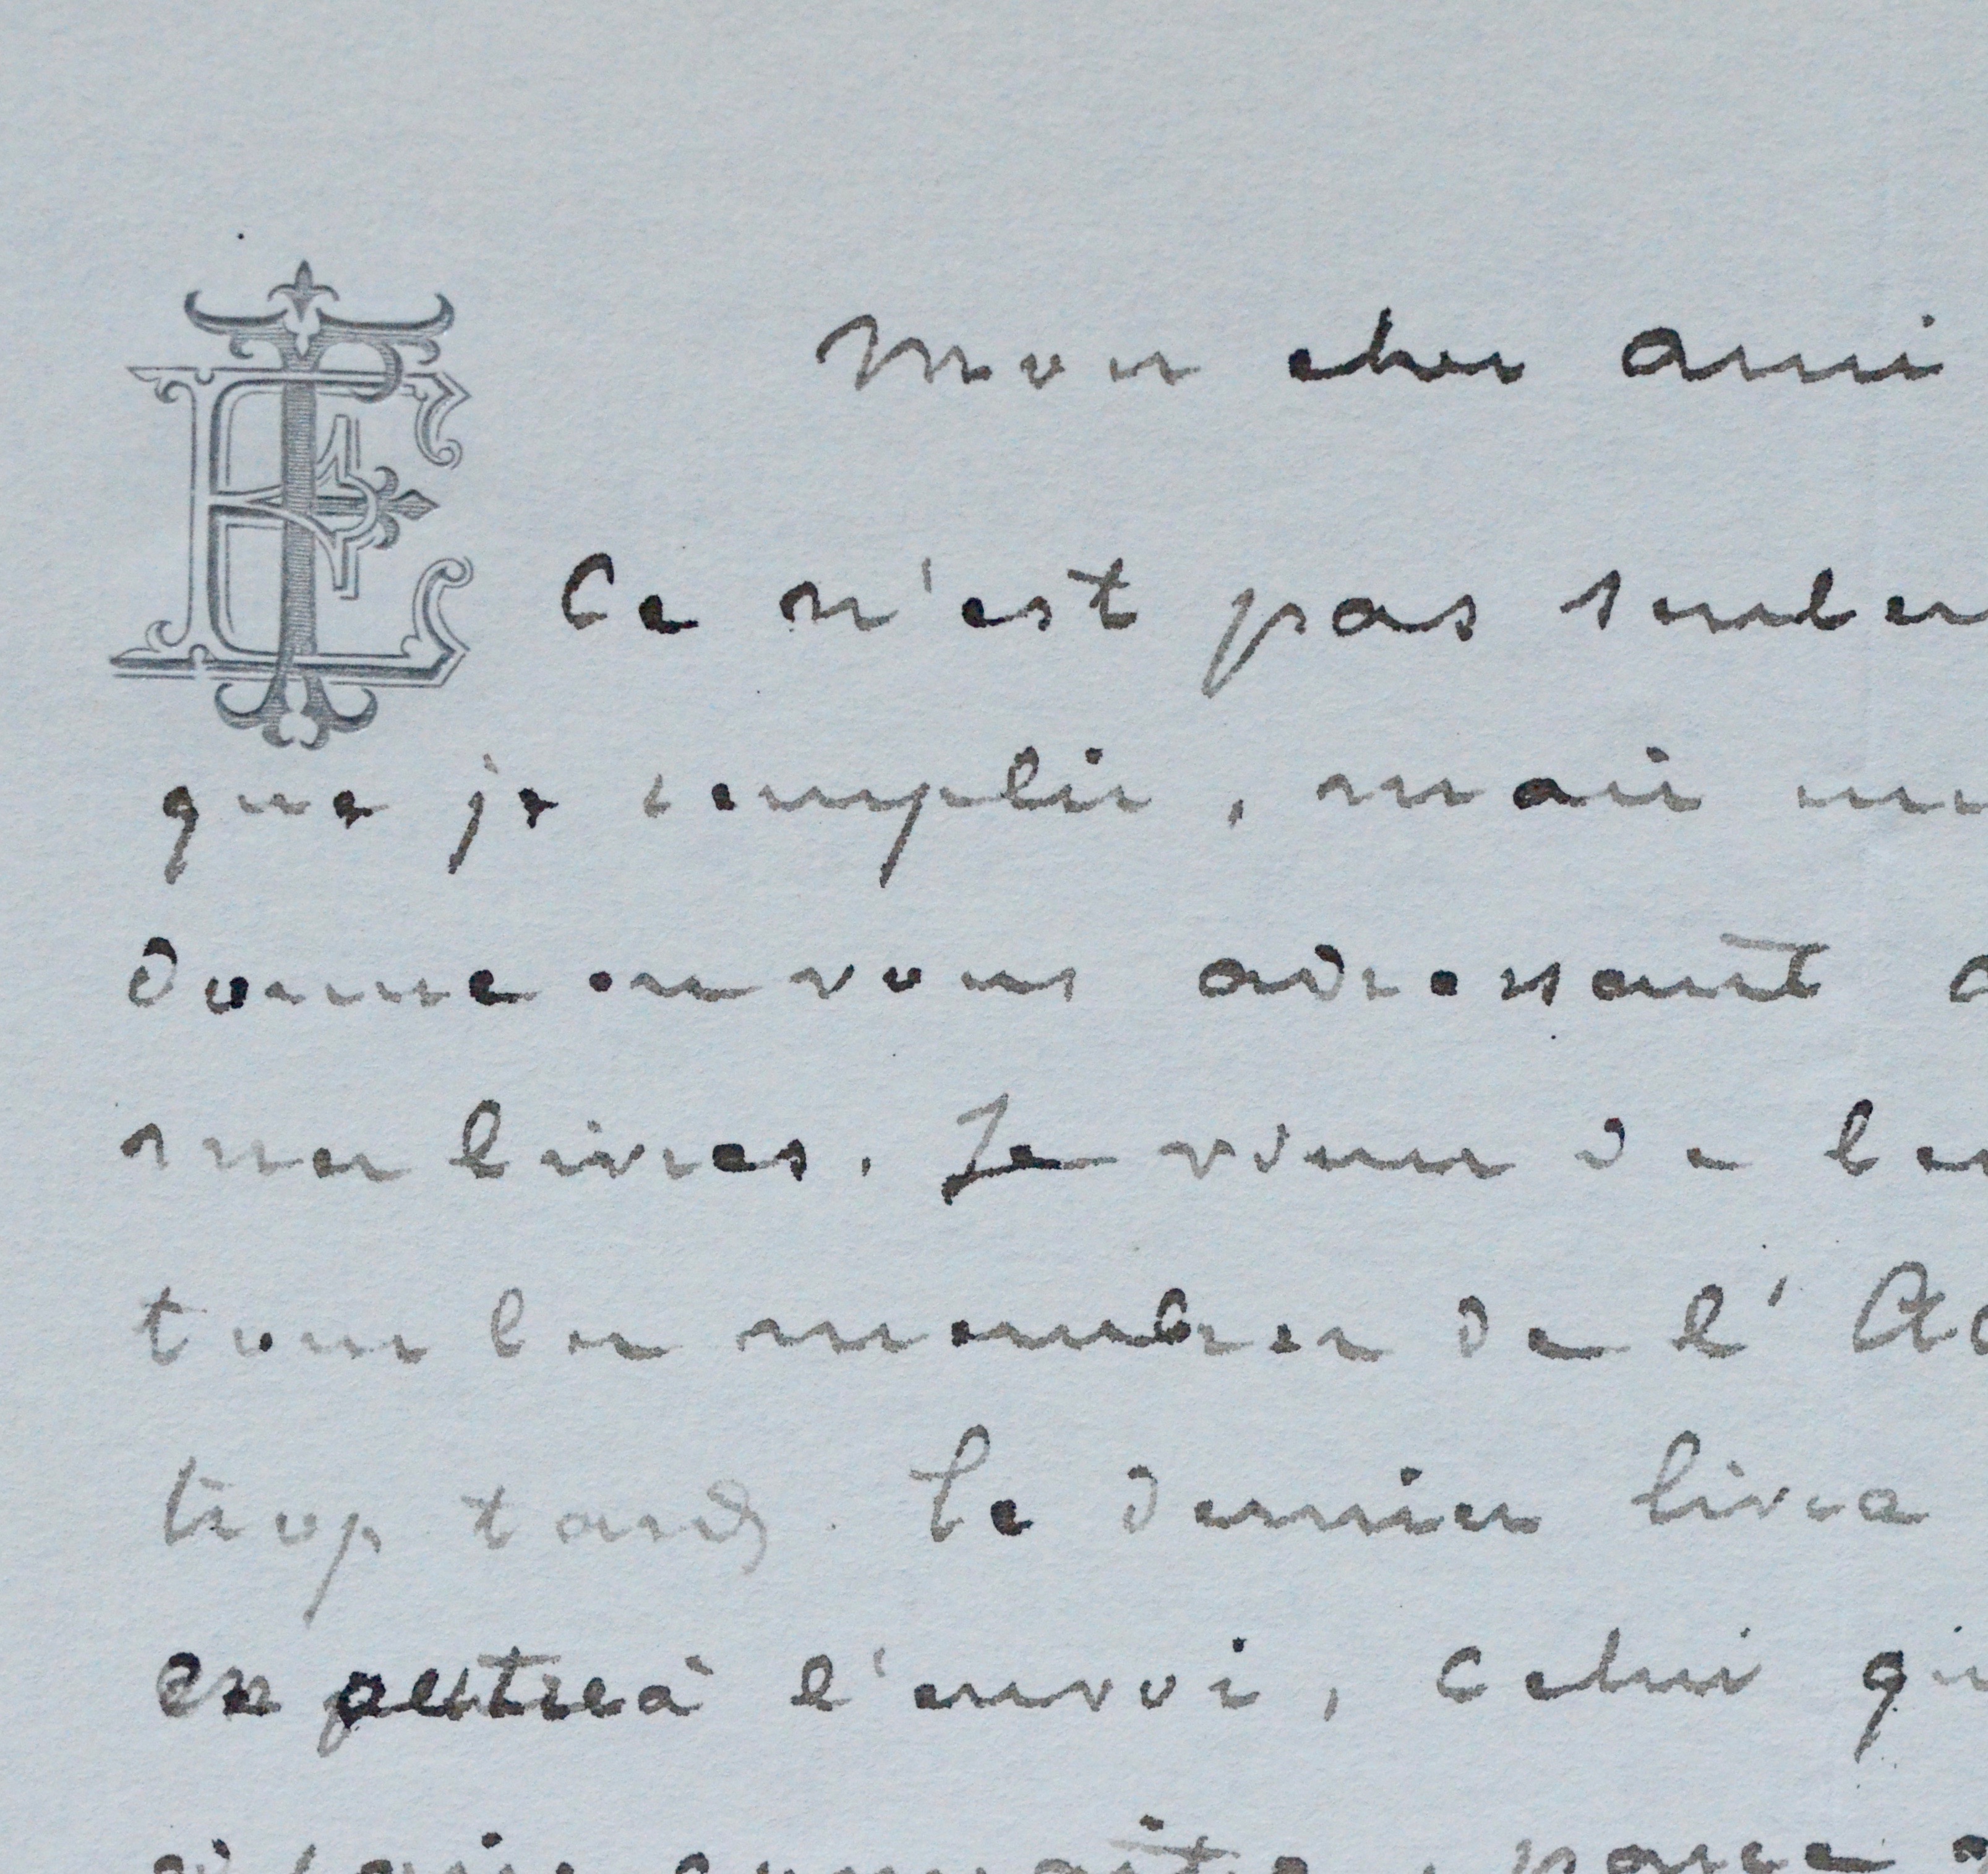 Mon cher ami
Ce n'est pas seulem
que je remplis, mais un
donne en vous adressant
mes livres. Je viens de
tous les membres de l'Ac
trop tard. Le dernier livre
en l'envoi, celui qu
connaître, parce